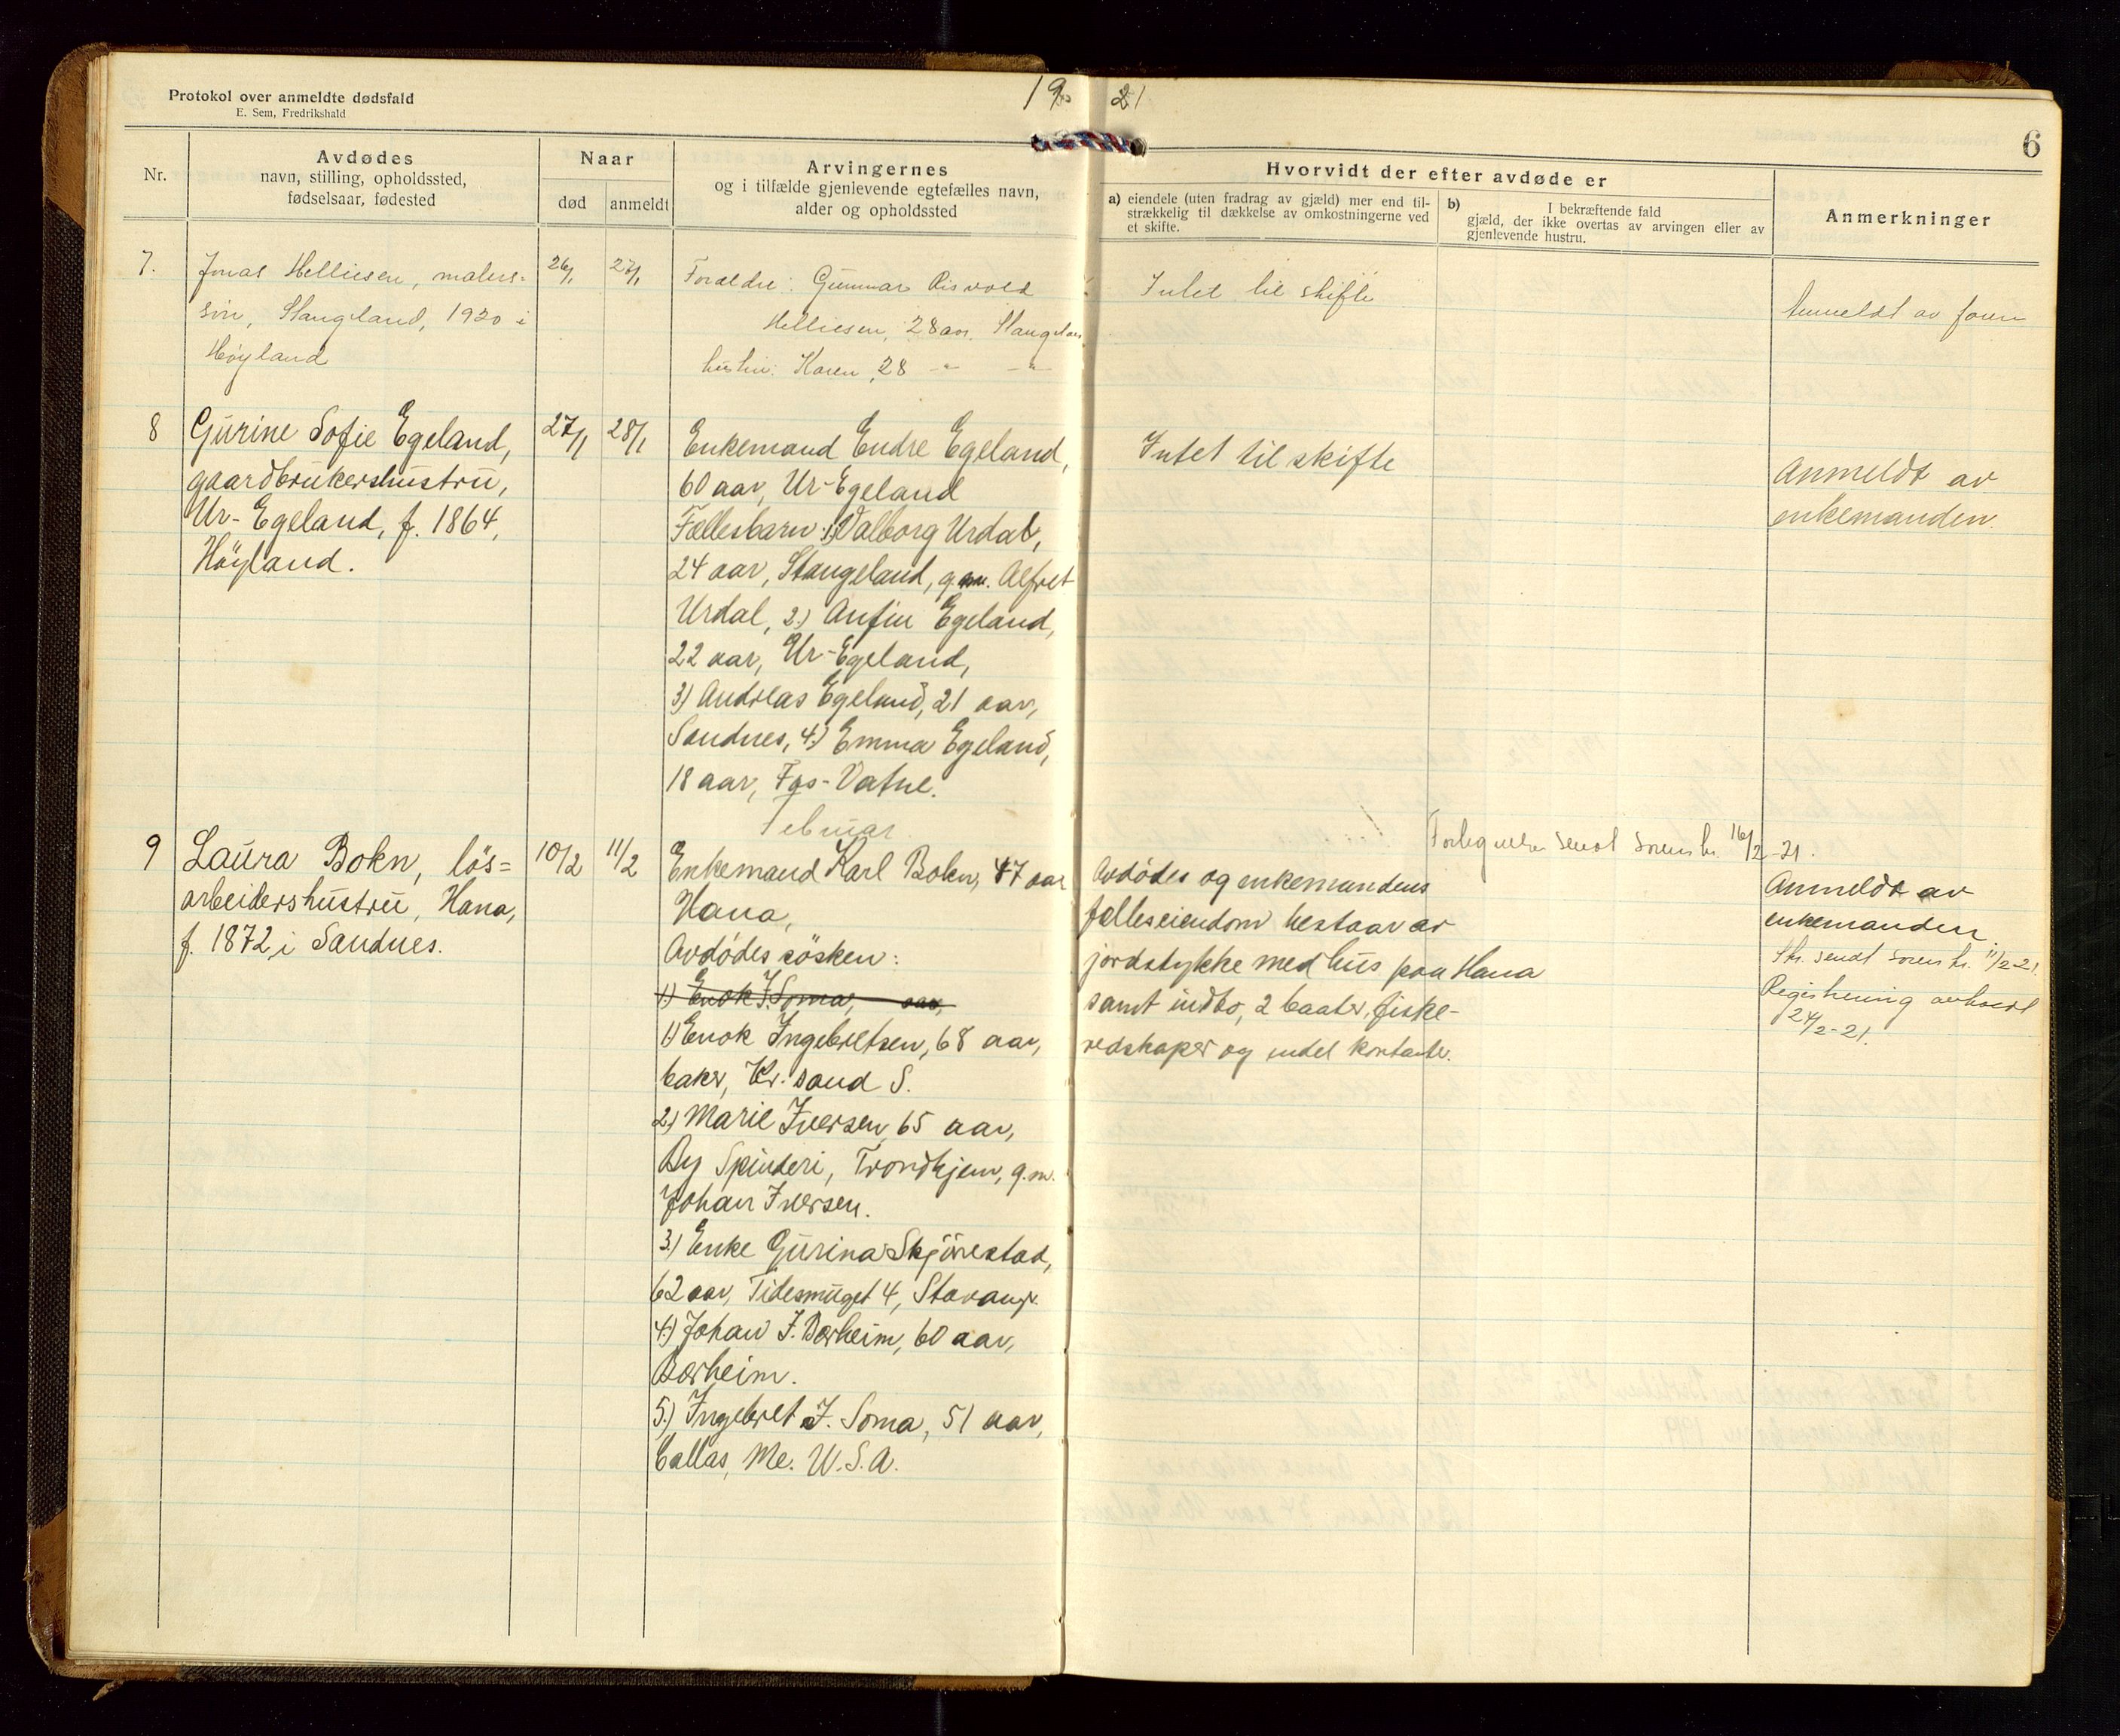 Protokol over anmeldte dødsfald
E. Sem, Fredrikshald
19 21
6
Nr.
Avdødes
navn, stilling, opholdssted,
fødselsaar, fødested
Naar
død
anmeldt
Arvingernes
og i tilfælde gjenlevende egtefælles navn,
alder og opholdssted
Hvorvidt der efter avdøde er
a) eiendele (uten fradrag av gjæld) mer end til-
strækkelig til dækkelse av omkostningerne ved
et skifte.
b) I bekræftende fald
gjæld, der ikke overtas av arvingen eller av
gjenlevende hustru.
Anmerkninger
7.
Jonas Helliesen, malers-
søn, Stangeland, 1920 i
Høyland
26/1
27/1
Forældre: Gunnar Risvold
Helliesen, 28 aar, Stangeland
hustru: Karen, 28 -"- -"-
Intet til skifte
Anmeldt av faren
8
Gurine Sofie Egeland,
gaardbrukershustru,
Ur-Egeland, f. 1864,
Höyland.
27/1
28/1
Enkemand Endre Egeland,
60 aar, Ur-Egeland
Fællesbarn: 1) Valborg Urdal,
24 aar, Stangeland, g.m. Alfret
Urdal, 2.) Anfin Egeland,
22 aar, Ur-Egeland,
3) Andreas Egeland, 21 aar,
Sandnes, 4.) Emma Egeland,
18 aar, Fgs-Vatne.
Intet til skifte
Anmeldt av
enkemanden.
Februar
9
Laura Bokn, lös=
arbeidershustru, Hana,
f. 1872 i Sandnes.
10/2
11/2
Enkemand Karl Bokn, 47 aar
Hana,
Avdödes sösken:
1) Enok I. Soma, aar,
1) Enok Ingebretsen, 68 aar,
baker, Kr.sand S.
2) Marie Iversen, 65 aar,
By Spinderi, Trondhjem, g.m.
Johan Iversen.
3.) Enke Gurina Skjörestad,
62 aar, Tidesmuget 4, Stavangr.
4.) Johan I. Bærheim, 60 aar,
Bærheim.
5.) Ingebret I. Soma, 51 aar,
Callas, Me. U.S.A.
sendt sorenskr. 16/2-21.
Avdödes og enkemandens
fælleseiendom bestaar av
jordstykke med hus paa Hana
samt indbo, 2 baater, fiske-
redskaper og endel kontanter.
Anmeldt av
enkemanden.
Skr. sendt sorenskr. 11/2-21.
Registrering avholdt
24/2-21.